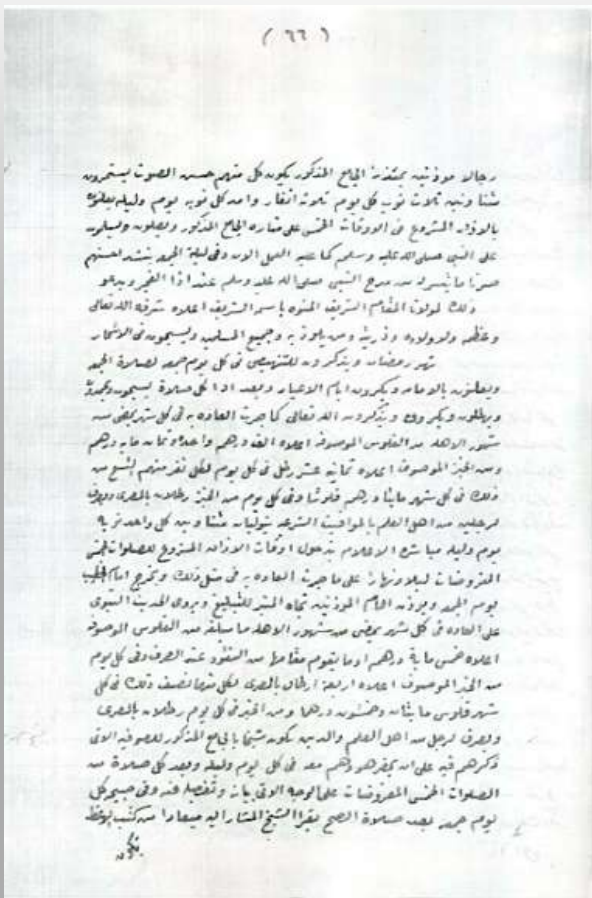 (٦٦)
رجالا موذنين بمئذنة الجامع المذكور يكون كل منهم حسن الصوت يستمرون
مثنا وبين ثلاث نوب كل يوم ثلاث انفار واحد كل نوبه يوم وليله يعلنون
بالاذان المشروع فى الاوقات الخمس على مناره الجامع المذكور ويصلون ويسلمون
على النبى صلى الله عليه وسلم كما عليه العمل الان وفى ليلة الجمعه
ما تيسر له من مدح النبى صلى الله عليه وسلم عند اذا الفجر ويدعو
ذلك لمولانا المقام الشريف المنوه باسمه الشريف اعلاه شرفه الله تعالى
وعظمه ولاولاده وذريته ومن يلوذ به وجميع المسلمين ويسبحون فى الاسحار
شهر رمضان ويذكرون فى كل يوم جمعه لصلاة الجمعه
ويعلنون بالاقامه ويكبرون ايام الاعياد وبعد اذا كل صلاة يسبحون
ويهللون ويكبرون ويذكرون الله تعالى كما جرت العاده به فى كل شهر يمضى من
شهور الاهله من الفلوس الموصوفه اعلاه الف درهم واحده وثمان مايه درهم
ومن الخبز الموصوف اعلاه ثمانيه عشر رطل فى كل يوم لكل نفر منهم تسع من
ذلك فى كل شهر مايتا درهم فلوسا وفى كل يوم من الخبز رطلان بالمصرى ويصرف
لرجلين من اهل العلم بالمواقيت الشرعيه يتوليان مثنا وبين كل واحد نوبه
يوم وليله مباشره الاعلام بدخول اوقات الاذان المشروع للصلوات الخمس
المفروضات ليلا ونهارا على ما جرت العاده به فى مثل ذلك ويخرج امام الخطيب
يوم الجمعه ويوذن امام الموذنين تجاه المنبر للتبليغ ويروى الحديث النبوى
على العاده فى كل شهر يمضى من شهور الاهله ما مبلغه من الفلوس الموصوفه
اعلاه خمس مايه درهم او ما يقوم مقامها من النقود عند الصرف وفى كل يوم
من الخبز الموصوف اعلاه اربعة ارطال بالمصرى لكل منهما نصف ذلك فى كل
شهر فلوس مايتان وخمسون درهما ومن الخبز فى كل يوم رطلان بالمصرى
ويصرف لرجل من اهل العلم والدين يكون شيخا بالجامع المذكور للصوفيه الاتى
ذكرهم فيه على ان يحضر هو وهم معه فى كل يوم وليله وبعد كل صلاة من
الصلوات الخمس المفروضات على الوجه الاتى بيانه وتفصيله فيه وفى صبيحة كل
يوم جمعه بعد صلاة الصبح يقرا الشيخ المشار اليه ميعادا من كتب الوعظ